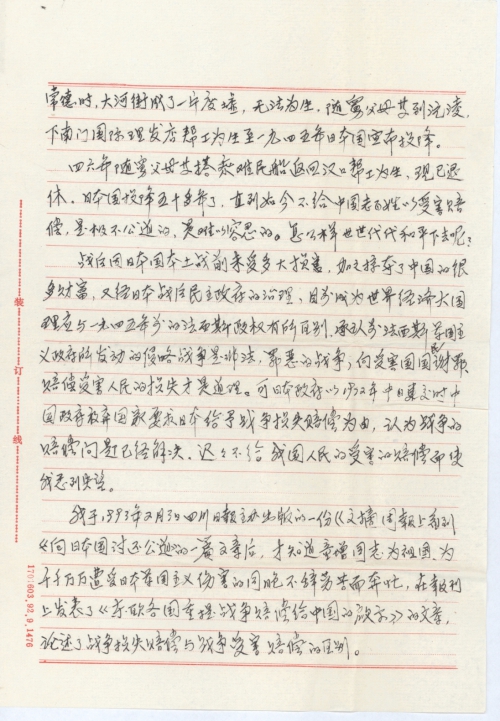 常德时，大河街成了一片废墟，无法为生，随岳父母去到沅凌，
下南门国际理发店帮工为生至一九四五年日本国宣布投降。
四六年随岳父母去搭乘难民船返回汉口帮工为生，现已退
休。日本国投降五十多年了，直到如今不给中国老百姓以受害赔
偿，是极不公道的，莫难以容忍的。怎么样世世代代和平下去呢？
战后因日本国本土战前未受多大损害，加之掠夺了中国的很
多财富，又经日本战后民主政府的治理，日前成为世界经济大国
理应与一九四五年前的法西斯政权有所区别，承认前法西斯军国主
义政府所发动的侵略战争是非法、罪恶的战争，向受害国国民谢罪
赔偿受害人民的损失才是道理。可日本政府以1972年中日建交时中
国政府放弃国家要求日本给予战争损失赔偿为由，认为战争的
赔偿问题已经解决，迟迟不给我国人民的受害的赔偿而使
我感到失望。
我于1993年2月3日四川日报主办出版的一份《文摘周报上看到
《向日本国讨还公道》的一篇文章后，才知道童增同志为祖国、为
千千万万遭受日本军国主义伤害的同胞不辞劳苦而奔忙，在报刊
上发表了《东欧各国重提战争赔偿给中国的启示》的文章，
论述了战争损失赔偿与战争受害赔偿的区别。
装
订
线
1701603.92.9.1476